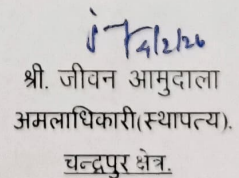 4/2/26
श्री. जीवन आमुदाला
अमलाधिकारी(स्थापत्य).
चन्द्रपुर क्षेत्र.